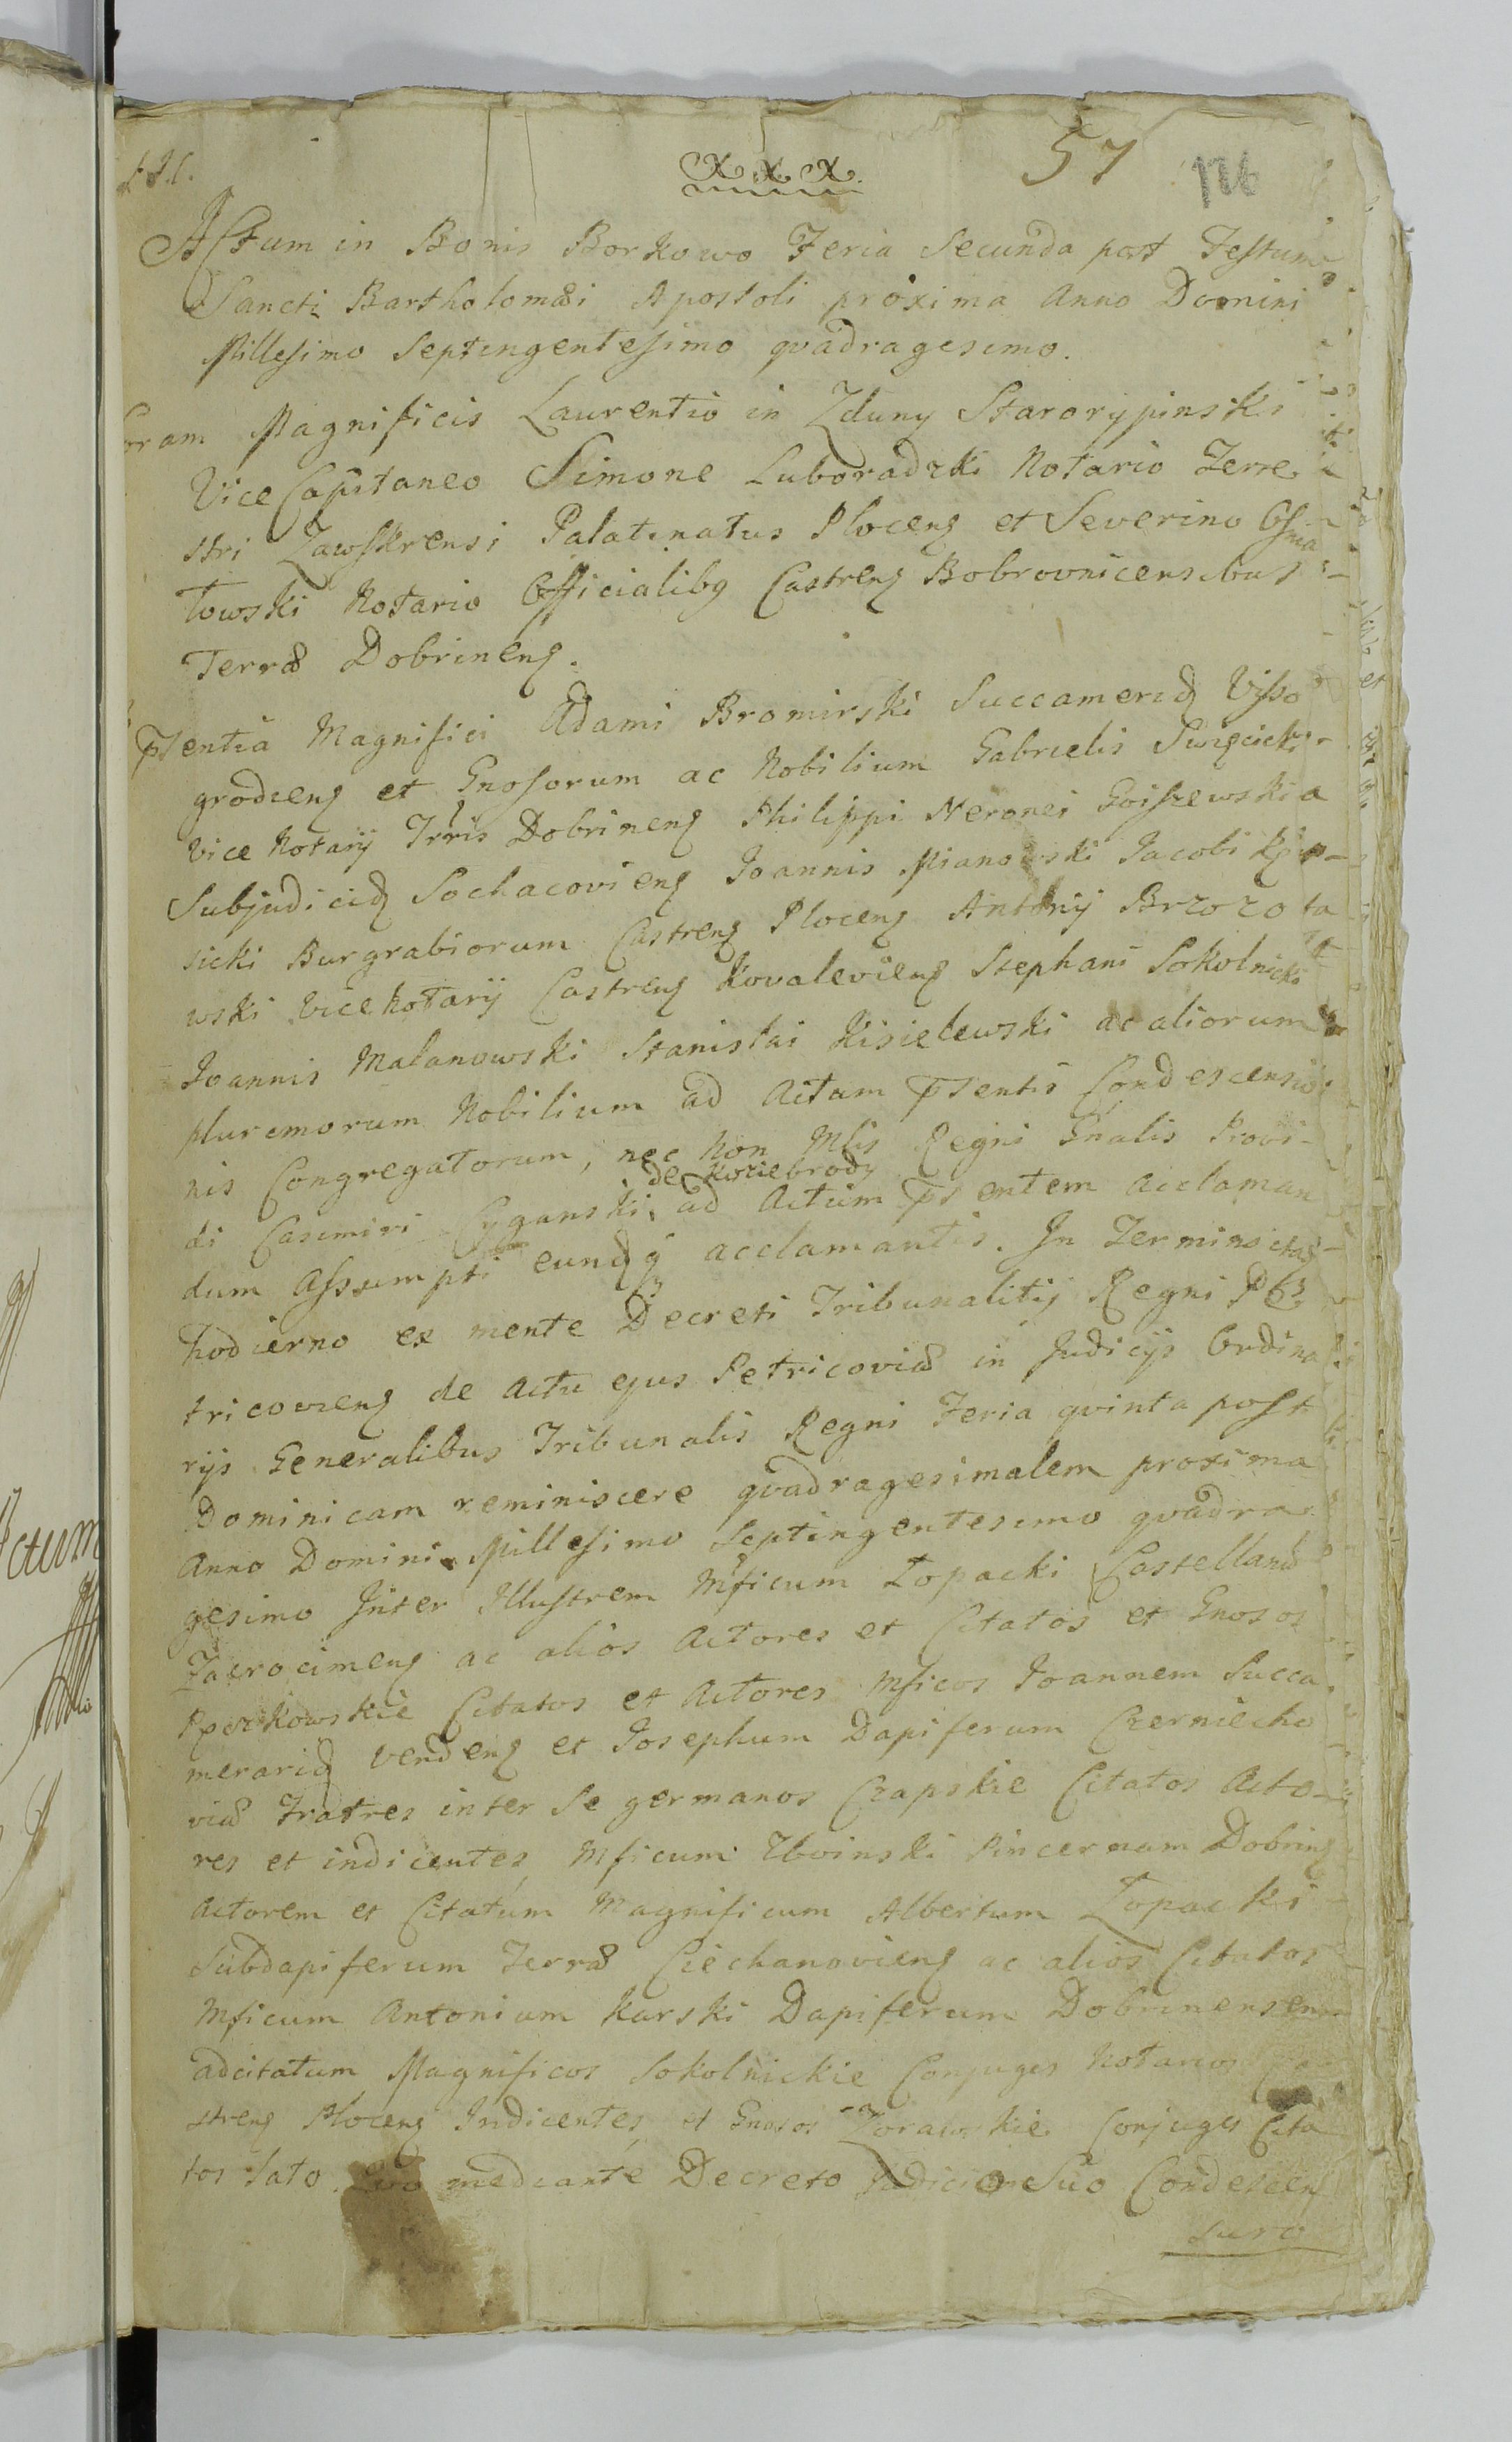 X X X.
57 126
Actum in Bonis Borkowo Feria Secunda post Festum
Sancti Bartholomæi Apostoli proxima Anno Domini
Millesimo Septingentesimo qvadragesimo.
Coram Magnificis Laurentio in Zduny Starorypinski
Vice Capitaneo Simone Luboradzki Notario Terre
stri Zawskrensi Palatinatus Plocens et Severino Osma
łowski Notario Officialibq Castrens Bobrovnicensibus
Terræ Dobrinens.
Psentia Magnifici Adami Bromirski Succamerid Visso
grodcens et Gnosorum ac Nobilium Gabrielis Swięcicki
Vice Notarij Trris Dobrinens Philippi Neronei Goiszewski
Subjudicid Sochacoviens Joannis Mianowski Jacobi
sicki Burgrabiorum Castrens Plocens Antonij Brzozo
wski Vice Notarij Castrens Kovaleviens Stephani Sokolnicki
Joannis Malanowski Stanislai Kisielewski ac aliorum
pluremorum Nobilium ad Actum Psentis Condescensio
nis Congregatorum, nec non Mlis Regni Gnalis Provi-
de Koziebrody
di Casimiri Cyganski ad Actum Psentem acclaman
dum assumpti eundq acclamantis. In Termino itaq
hodierno ex mente Decreti Tribunalitij Regni Pe
tricoviens de Actu ejus Petricoviæ in Judicijs Ordina
rijs Generalibus Tribunalis Regni Feria qvinta post
Dominicam reminiscere qvadragesimalem proxima
Anno Domini Millesimo Septingentesimo qvadra
gesimo Inter Illustrem Mficum Łopacki Castellanu
Zacrocimens ac alios Actores et Citatos et Gnosos
Citatos et Actores Mficos Joannem Succa
merarid Vendens et Josephum Dapiferum Czerniecho
viæ Fratres inter se germanos Czapskie Citatos Acto-
res et indicentes, Mficum Zboinski Pincernam Dobrins
Actorem et Citatum Magnificum Albertum Łopacki
Subdapiferum Terræ Ciechanoviens ac alios Citatos
Mficum Antonium Karski Dapiferum Dobrinensem
adcitatum Magnificos Sokolnickie Conjuges Notarios Ca
strens Plocens Indicentes, et Gnosos Zorawskie Conjuges Cita
tos lato. Quo mediante Decreto Judicio Suo Condescen
suro